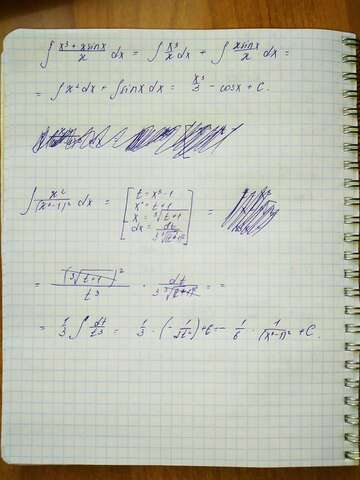 ∫ (x³ + x sin x)/x dx = ∫ x³/x dx + ∫ (x sin x)/x dx =
= ∫ x² dx + ∫ sin x dx = x³/3 - cos x + C.
∫ x²/(x³-1)² dx = [ t = x³-1
x³ = t+1
x = ³√(t+1)
dx = dt/(3 ³√(t+1)²) ] =
= (³√(t+1))²/t³ · dt/(3 ³√(t+1)²) = =
= 1/3 ∫ dt/t³ = 1/3 · (-1/(2t²)) + C = - 1/6 · 1/(x³-1)² + C.